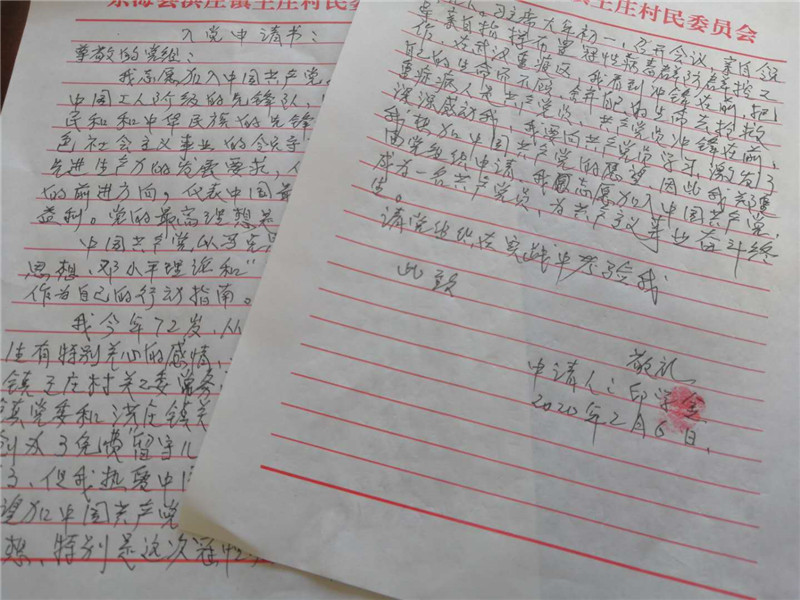 东海县洪庄镇王庄村民委
入党申请书:
尊敬的党组:
我志愿加入中国共产党。
中国工人阶级的先锋队,
民和和中华民族的先锋
色社会主义事业的领导
先进生产力的发展要求,
的前进方向,代表中国最
益利。党的最高理想是
中国共产党以马克思
思想、邓小平理论和"
作为自己的行动指南。
我今年72岁,从
生有特别关心的感情,
镇王庄村关工委常务
镇党委和洪庄镇关
创办了免费"留守儿
了,但我热爱中国
望加中国共产党
想、特别是这次冠状
王庄村民委员会
习主席大年初一,召开会议,亲自会
是亲自指挥布置冠性病毒群防群控工
作,这武汉重疫区,我看到冲锋在前,把
自己的生命不顾,舍命的生命去抢救
重症病人是共产党员,共产党员冲锋在前,
深深感动我,我要向共产党员学习,激发了
我想加中国共产党的愿望,因此我
向党组织申请,我志愿加入中国共产党,
成为一名共产党员,为共产主义事业奋斗终
生。
请党组织在实战中考验我
此致
敬礼
申请人:
2020年2月6日.